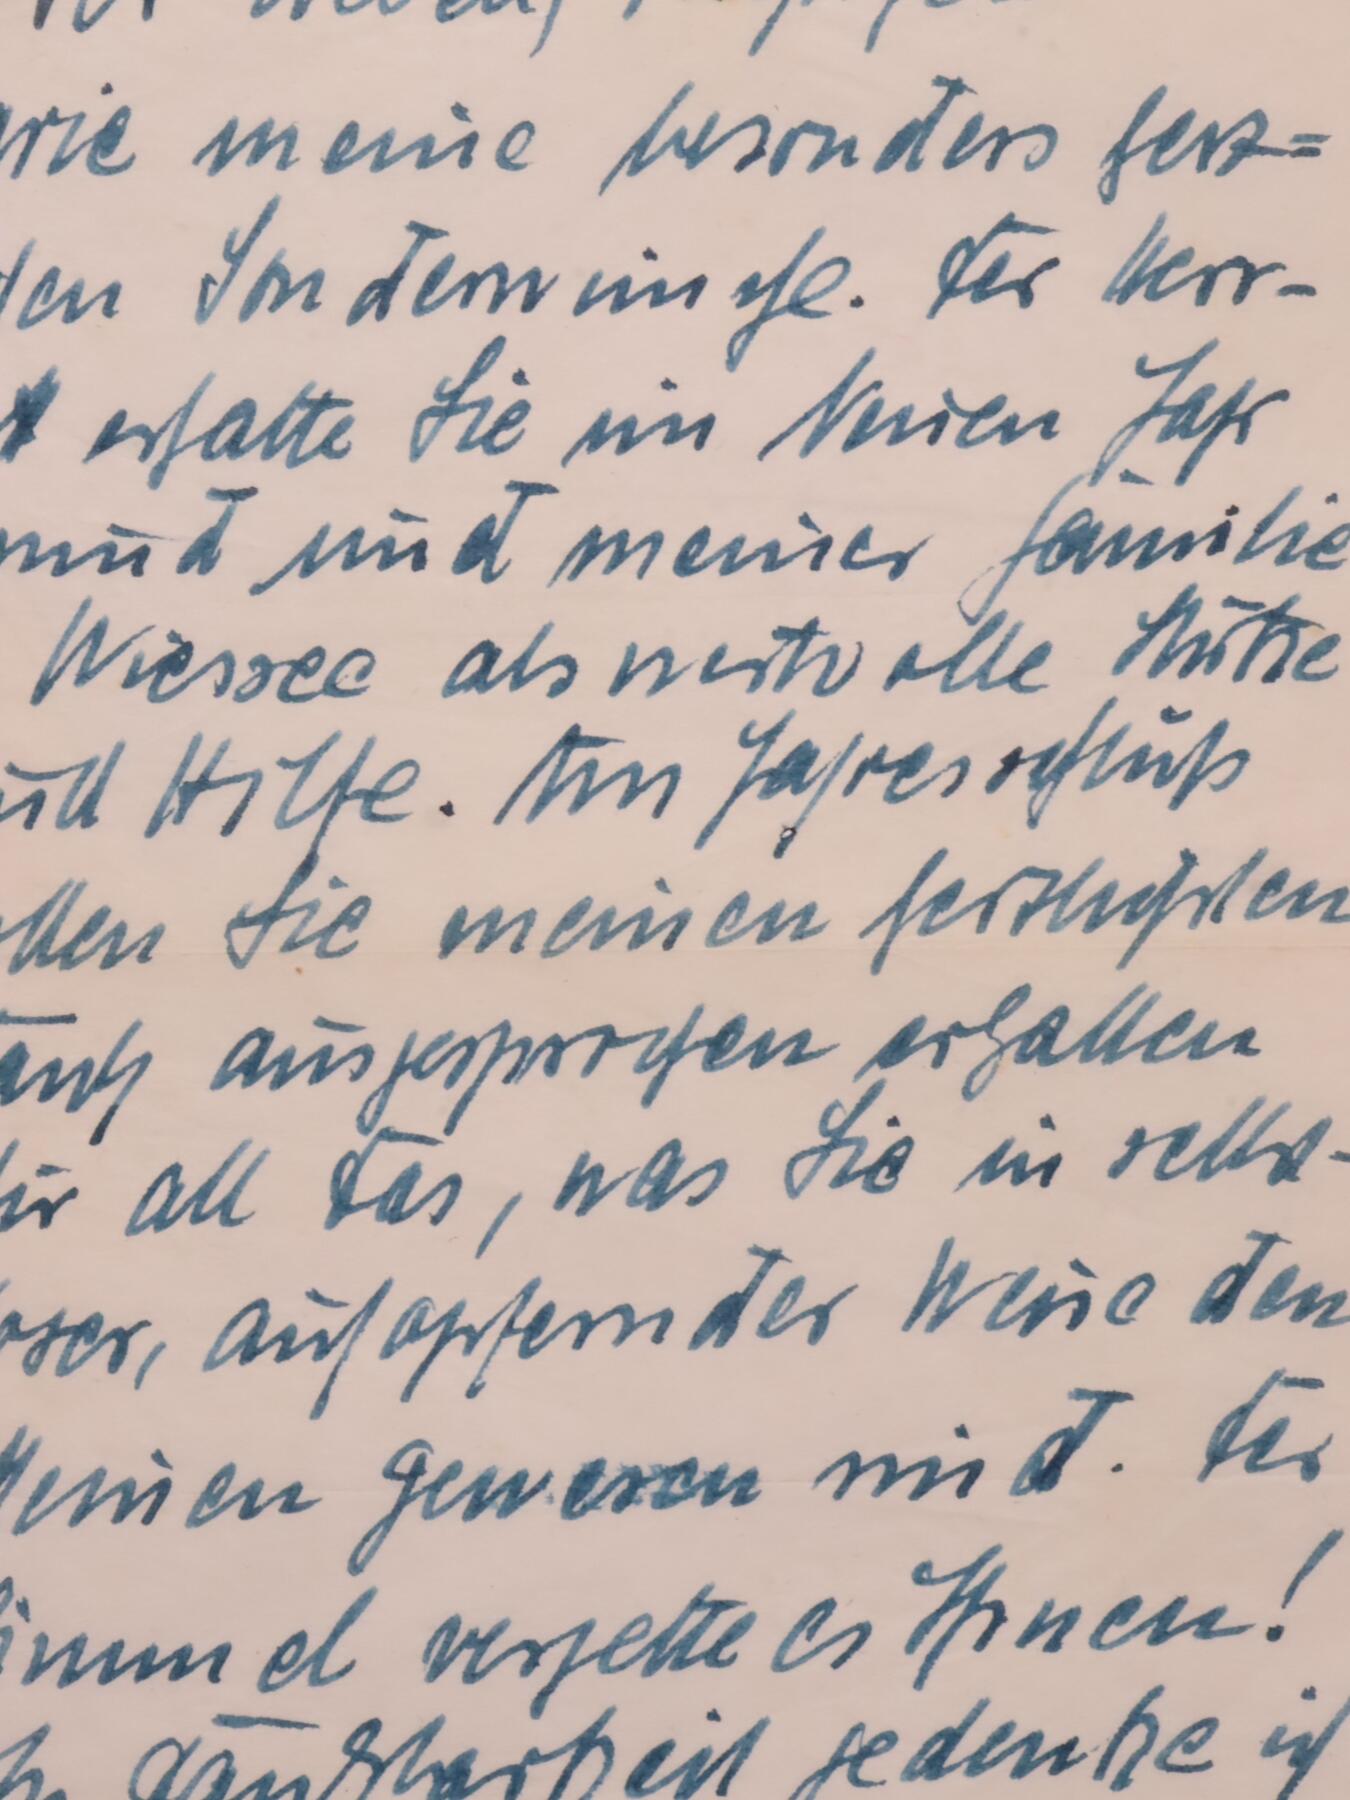 meine besonders herz=
den Sonderwünsche. Der Herr-
erhalte Sie im Neuen Jahr
und meiner Familie
Wiessee als wertvolle Stütze
und Hilfe. Am Jahresschluß
ollen Sie meinen herzlichsten
Dank ausgesprochen erhalten
für all das, was Sie in selbst-
loser, aufopfernder Weise den
Meinen gewesen sind. Der
Himmel vergelte es Ihnen!
Dankbarkeit gedenke ich